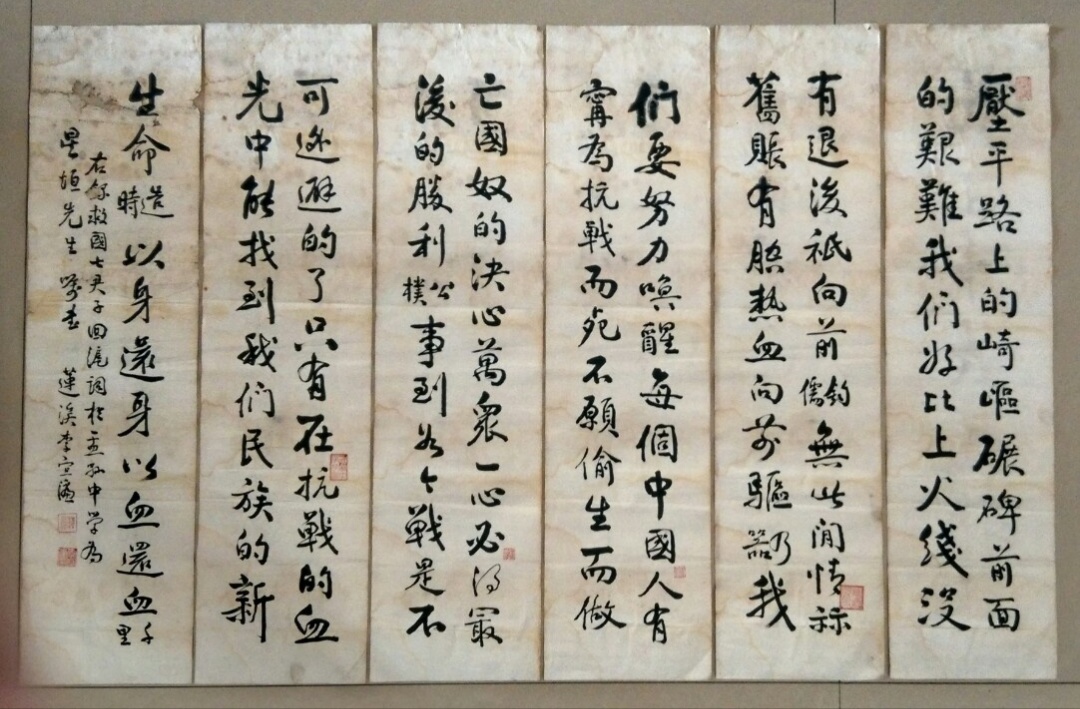 壓平路上的崎嶇碾碑前面
的艱難我們好比上火綫沒
有退後祇向前鈞儒無此閒情祘
舊賬有腔熱血向前驅乃器我
們要努力喚醒每個中國人有
寧為抗戰而死不願偷生而做
亡國奴的決心萬衆一心必得最
後的勝利公樸事到如今戰是不
可逃避的了只有在抗戰的血
光中能找到我們民族的新
生命造時以身還身以血還血千里
右錄救國七君子回滬詞於中学為
星垣先生嘱書 蓮溪李宣